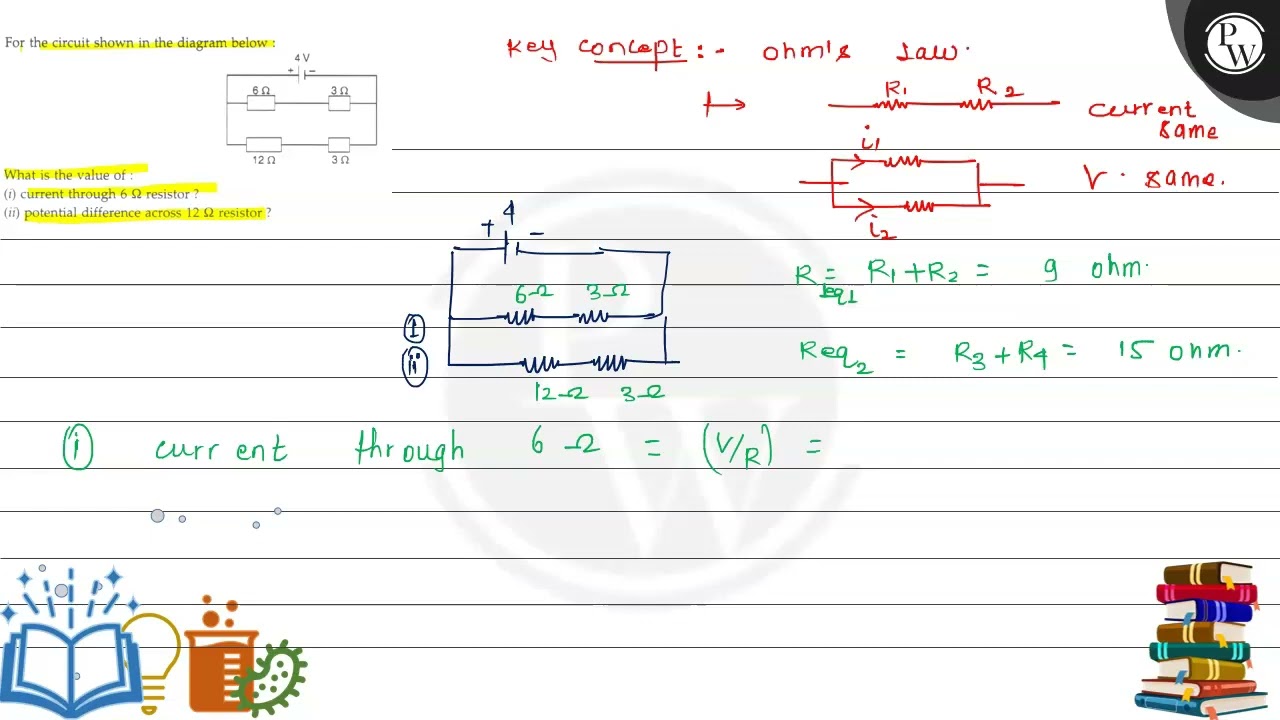 For the circuit shown in the diagram below :
4 V
+ −
6 Ω 3 Ω
12 Ω 3 Ω
What is the value of :
(i) current through 6 Ω resistor ?
(ii) potential difference across 12 Ω resistor ?
Key concept :- ohm's law.
R1 R2
current same
i1
V. same.
i2
PW
4
+ −
6Ω 3Ω
I
ii
12Ω 3Ω
R eq1 = R1 + R2 = 9 ohm.
Req2 = R3 + R4 = 15 ohm.
i current through 6 Ω = (V/R) =
PW